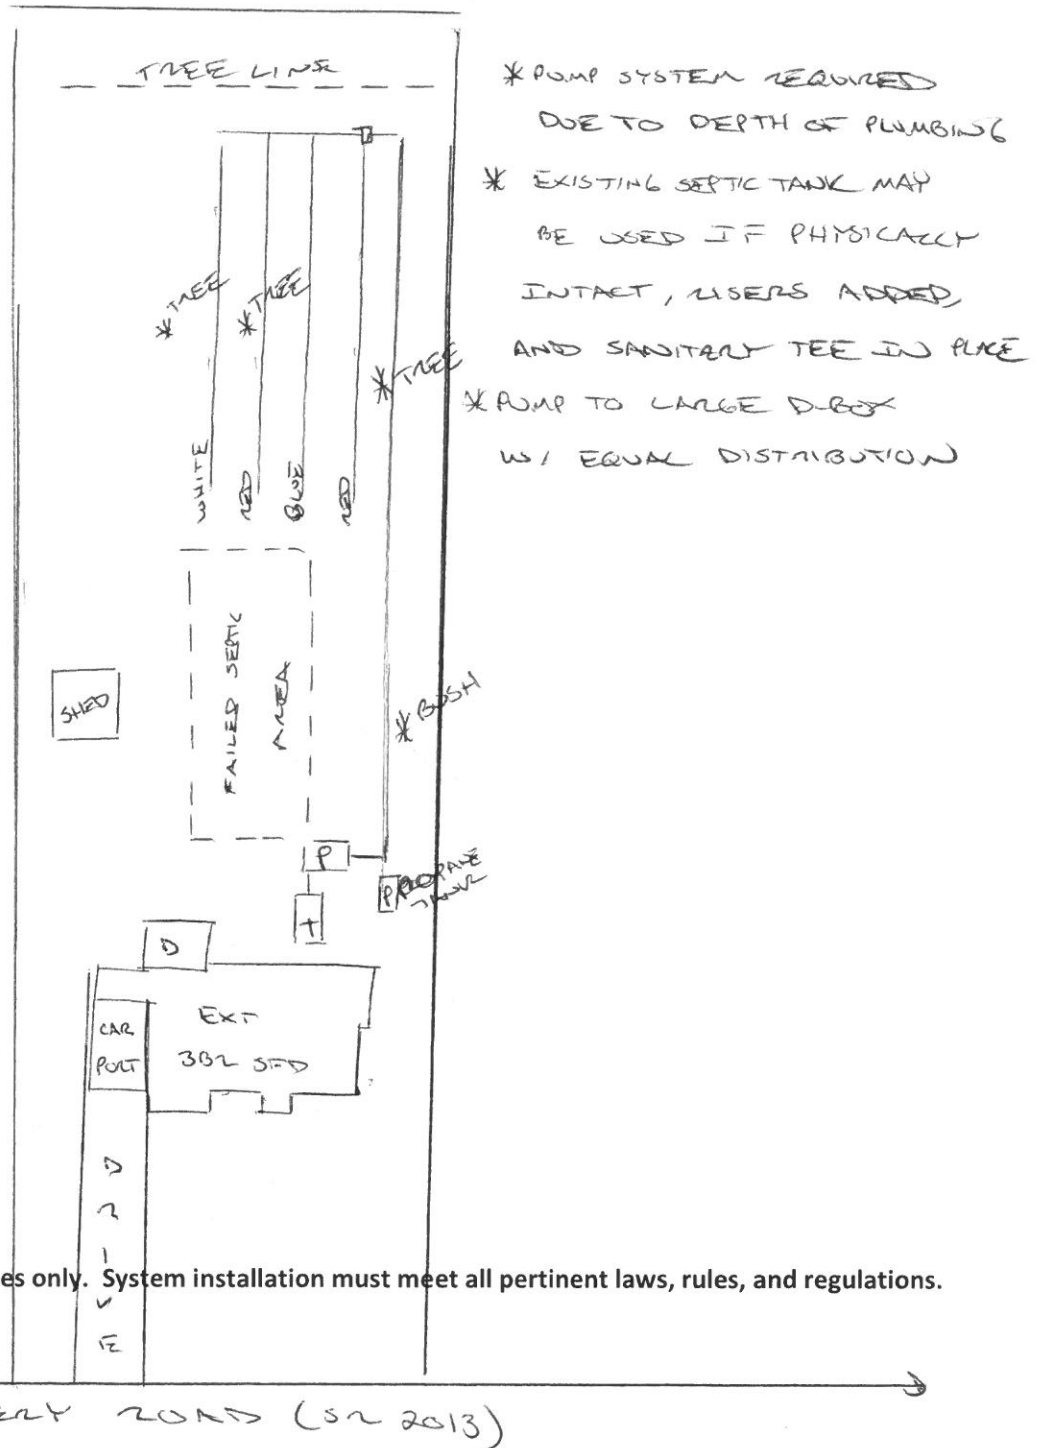 TREE LINE
* PUMP SYSTEM REQUIRED
DUE TO DEPTH OF PLUMBING
* EXISTING SEPTIC TANK MAY
BE USED IF PHYSICALLY
INTACT, RISERS ADDED,
AND SANITARY TEE IN PLACE
* PUMP TO LARGE D-BOX
W/ EQUAL DISTRIBUTION
* TREE
* TREE
* TREE
WHITE
RED
BLUE
RED
FAILED SEPTIC
AREA
SHED
* BUSH
P
P
PROPANE
TANK
T
D
CAR
PORT
EXT
3BR SFD
DRIVE
es only. System installation must meet all pertinent laws, rules, and regulations.
ERY ROAD (SR 2013)